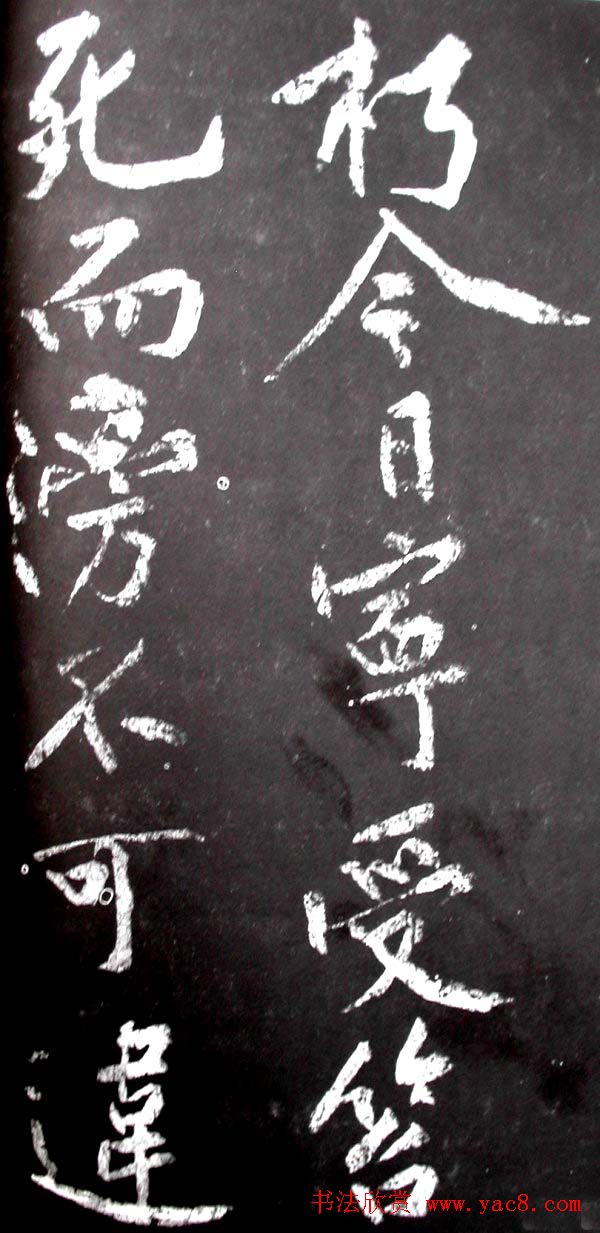 朽今日寧受笞
死而滂不可違
书法欣赏 www.yac8.com